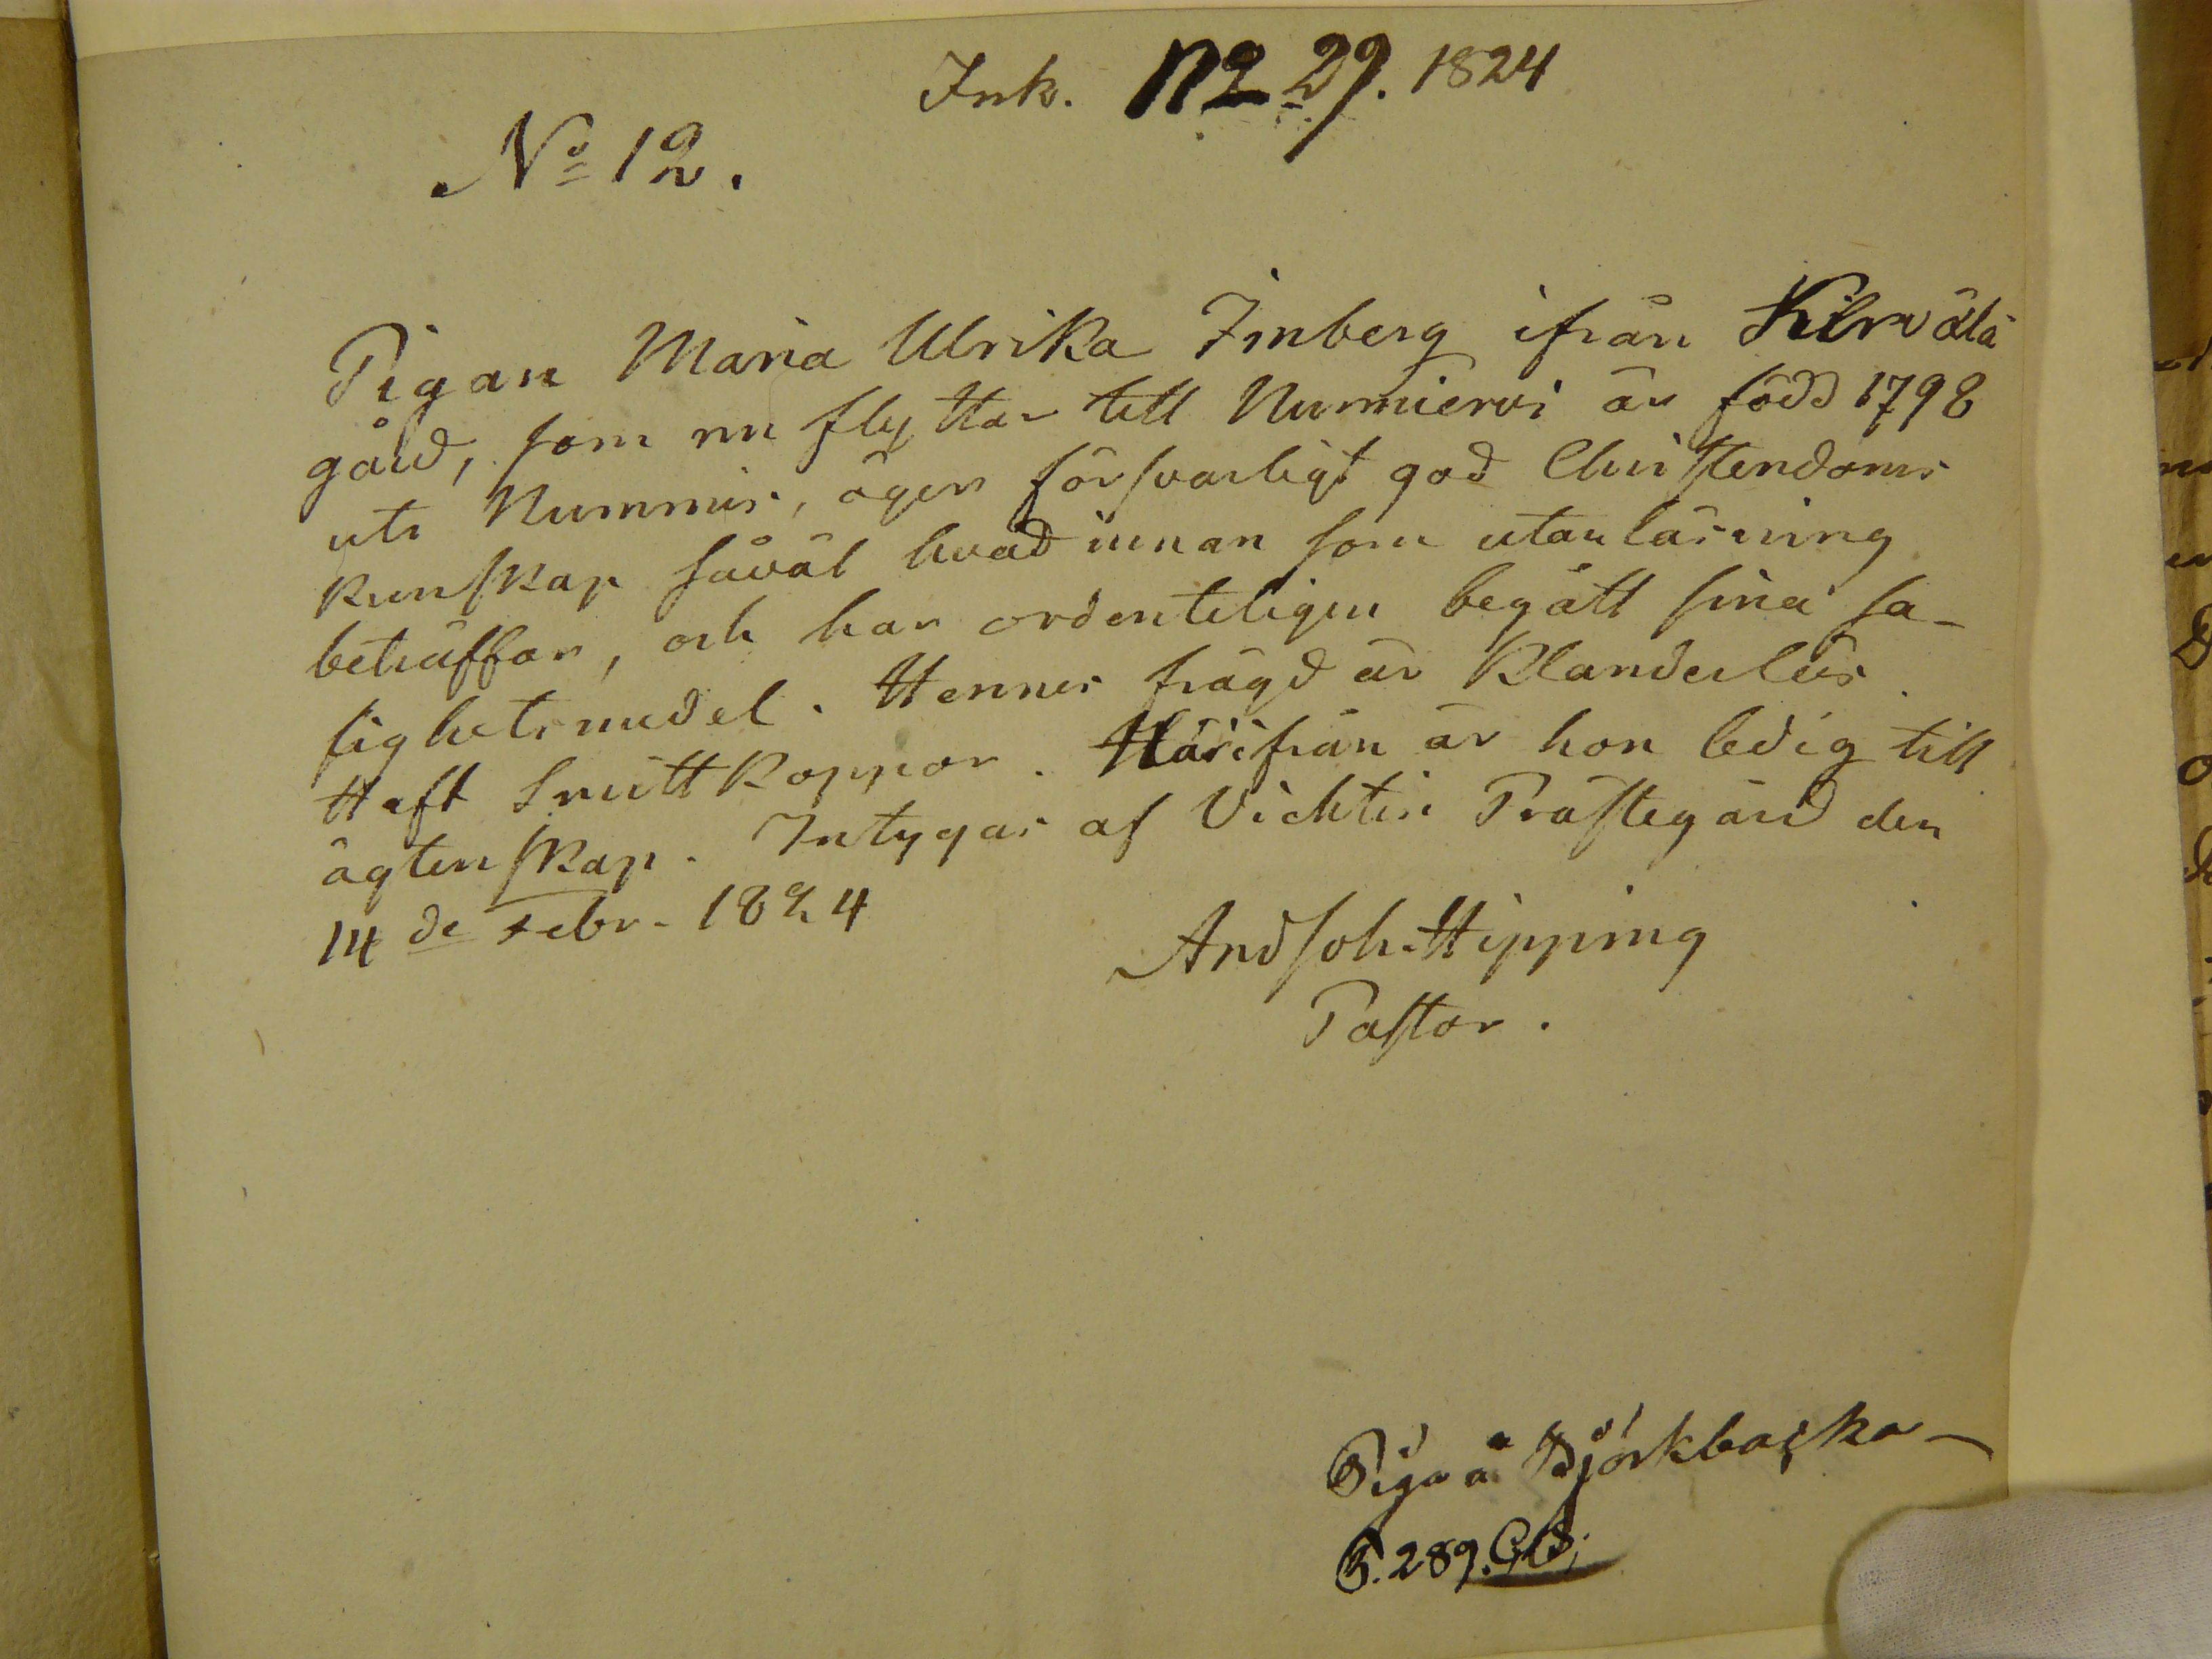 Ink. No 29. 1824
No 12.
Pigan Maria Ulrika Imberg ifrån Kirvälä
gård, som nu flyttar till Nurmiervi är född 1798
uti Nummis, äger försvarligt god Christendoms
kunskap såväl hvad innan som utanläsning
beträffar, och har ordenteligen begått sina sa-
lighetsmedel. Hennes frägd är klanderlös.
Haft Smittkoppor. Härifrån är hon ledig till
ägtenskap. Intygas af Vichtis Prästegård den
14 de Febr. 1824
And Joh. Hipping
Pastor.
Piga å Björkbacka
P. 289.